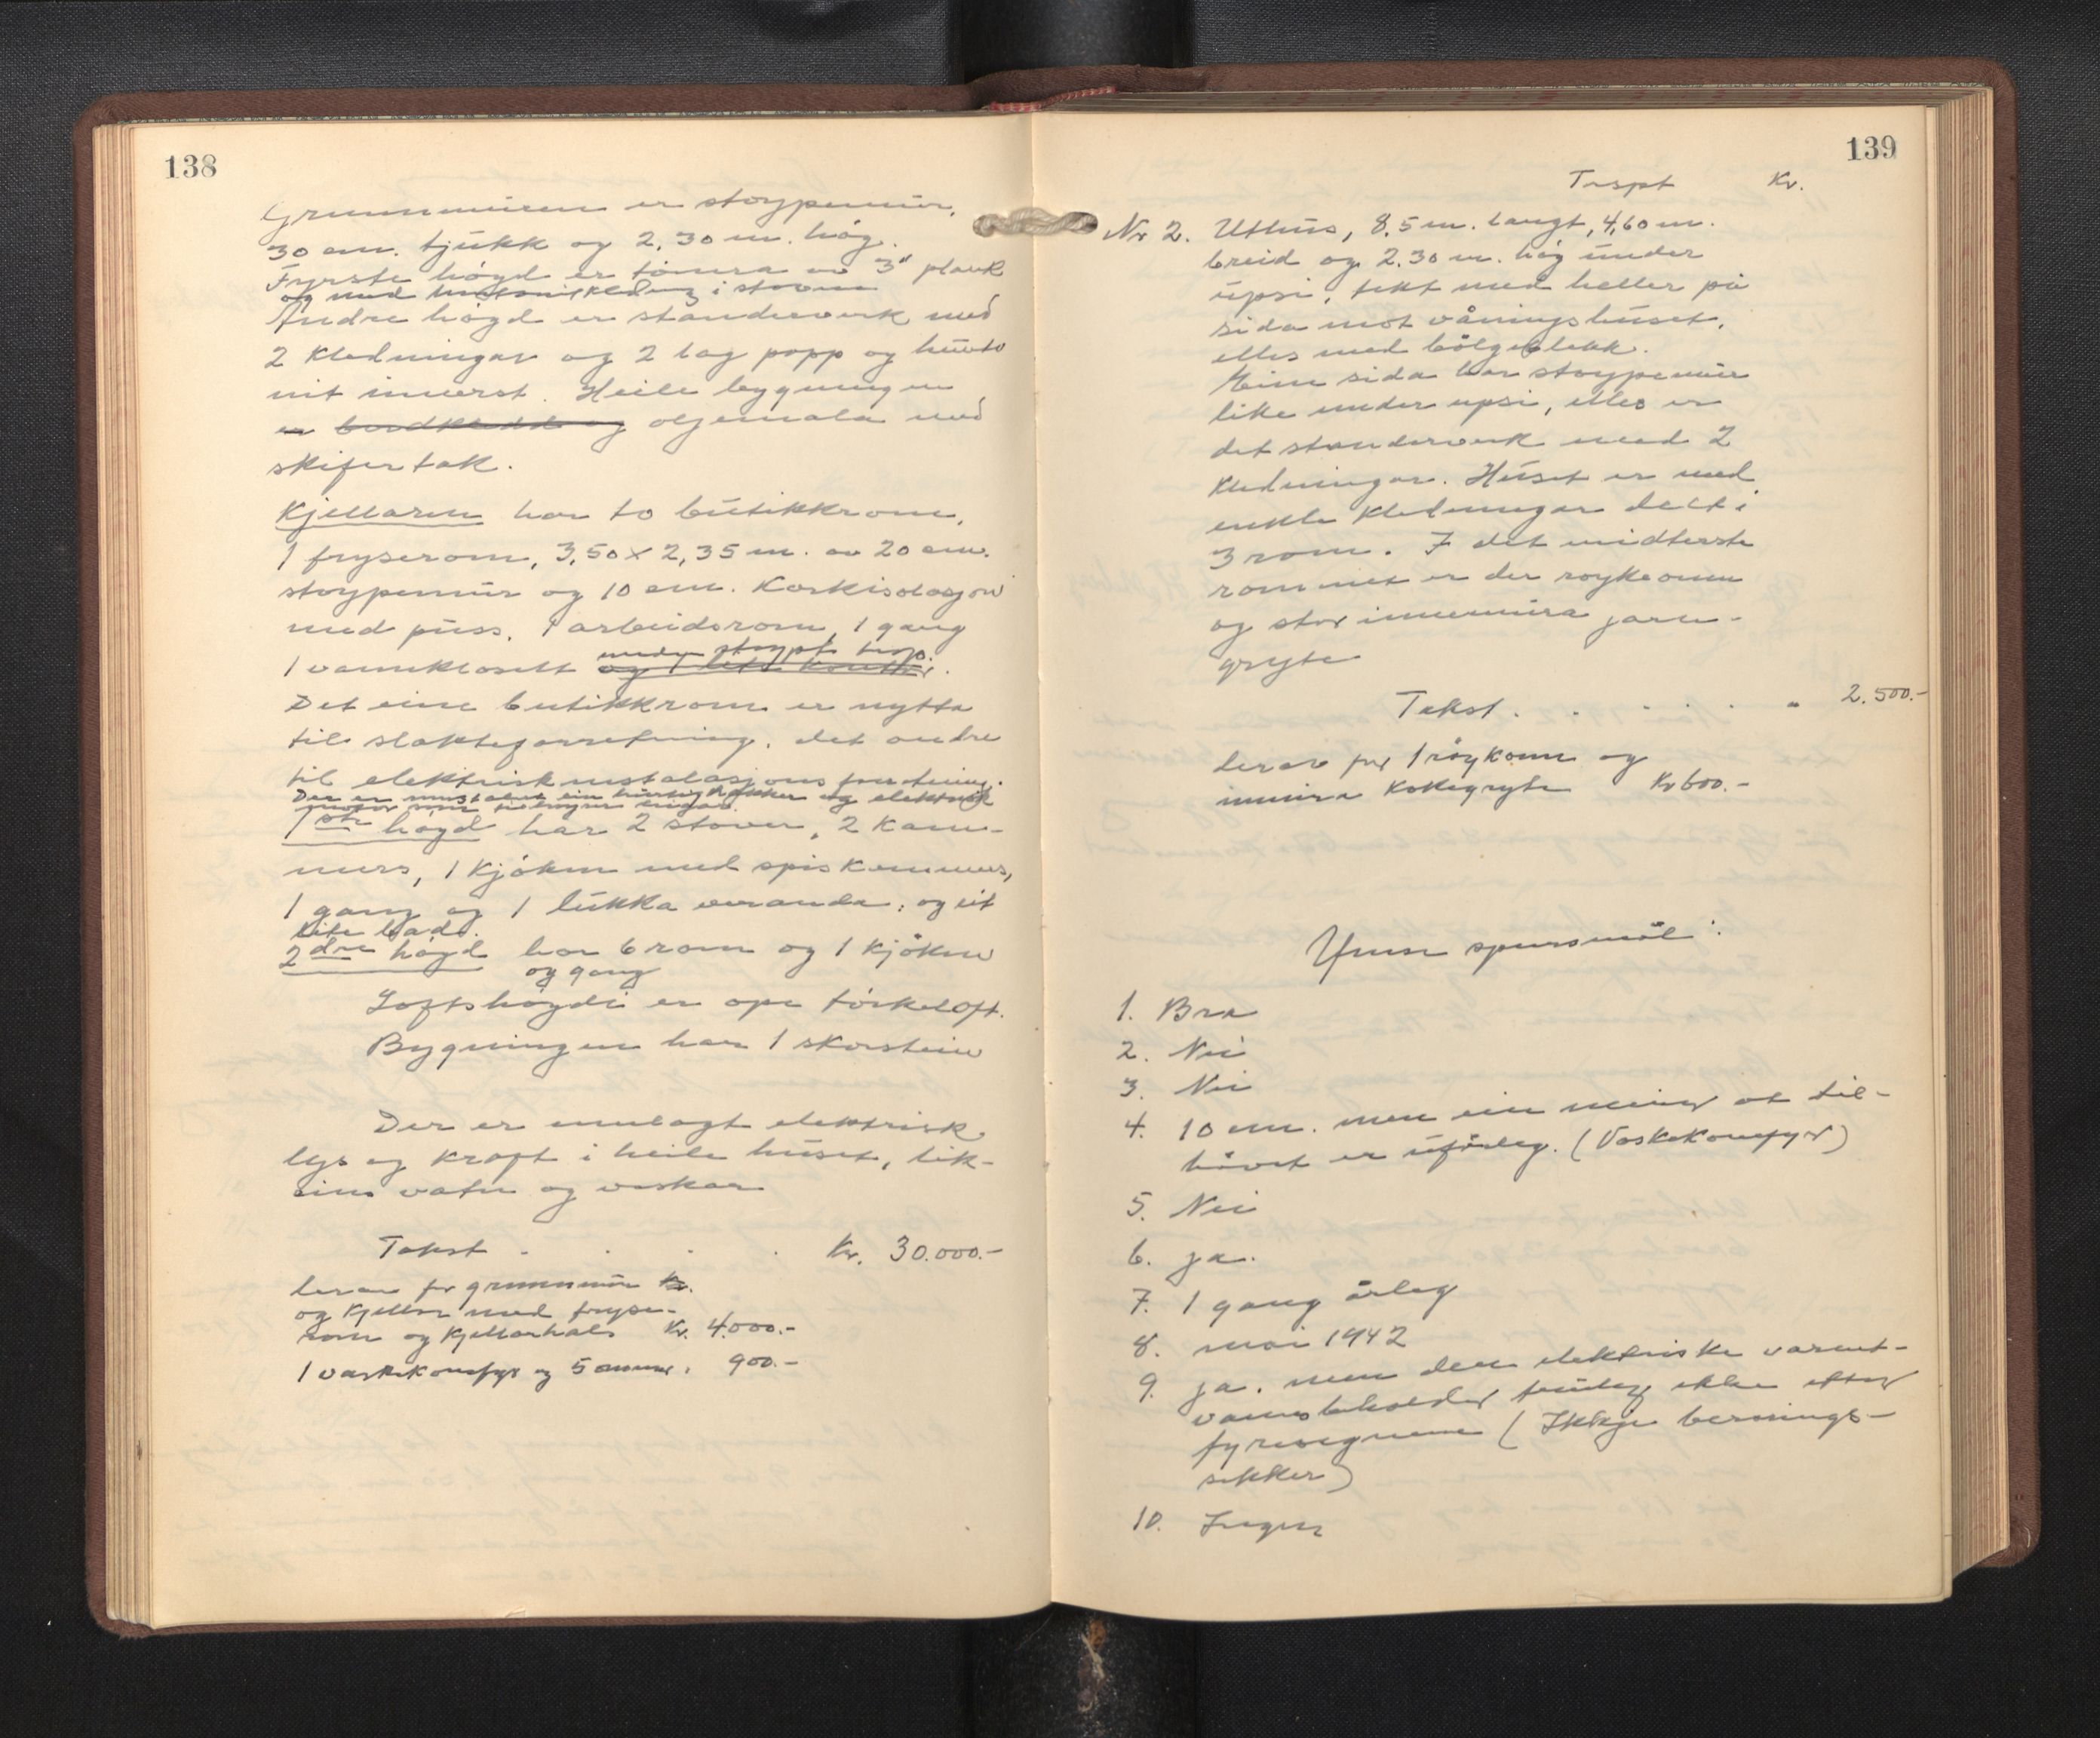 138
Grunnmuren er støypemúr,
30 cm. tjúkk og 2,30 m. høg.
Fyrste høgd er tømra av 3" plank
og med huntonitkledning i stovene
Andre høgd er standerverk med
2 kledningar og 2 lag papp og hunto
nit innerst. Heile bygningen
er bordkledd og oljemala med
skifertak.
Kjellaren har to bútikkrom,
1 fryserom, 3,50 x 2,35 m. av 20 cm.
støypemúr og 10 cm. Korkisolasjon
med púss, 1 arbeidsrom, 1 gang
under støypt trap.
1 vannklosett og 1 lite kontor.
Det eine butikkrom er nytta
til slakteforretning, det andre
til elektrisk instalasjons forretning.
Der er instalert ein hurtighakker og elektrisk
motor som
1ste høgd har 2 stover, 2 kam-
mers, 1 kjøken med spiskammers,
1 gang og 1 lúkka veranda, og eit
lite bad.
2dre høgd har 6 rom og 1 kjøken
og gang
Loftshøgdi er ope tørkeloft.
Bygningen har 1 skorstein
Der er innlagt elektrisk
lys og kraft i heile húset, lik-
eins vatn og vaskar
Takst . . . . Kr. 30.000.-
herav for grunnmúr kr.
og kjellar med fryse-
rom og kjellarhals Kr. 4.000.-
1 vaskekomfyr og 5 omnar. 900.-
139
Trspt Kr.
Nr 2. Uthús, 8,5 m. langt, 4,60 m.
breid og 2.30 m. høg únder
úpsi, tekt med heller på
sida mot våningshúset,
elles med bølgeblekk.
Eine sida har støypemúr
like under upsi, elles er
det standerverk med 2
kledningar. Húset er med
enkle kledningar delt i
3 rom. I det midterste
rommet er der røykeomn
og stor innemúra jarn-
gryte
Takst . . . . . " 2.500.-
herav for 1 røykomn og
inmúra kokegryte Kr 600.-
Ymse spursmål:
1. Bra
2. Nei
3. Nei
4. 10 cm. men ein meiner at til-
høvet er ufårleg. (Vaskekomfyr)
5. Nei
6. ja.
7. 1 gang årleg
8. mai 1942
9. ja. men den elektriske varmt-
vannsbeholder truleg ikke etter
fyresegnene (Ikkje bernings-
sikker)
10. Ingen